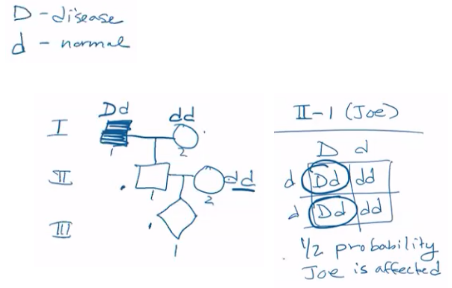 D - disease
d - normal
I
Dd
dd
1
2
II
1
dd
2
III
1
II-1 (Joe)
D d
d Dd dd
d Dd dd
1/2 probability
Joe is affected